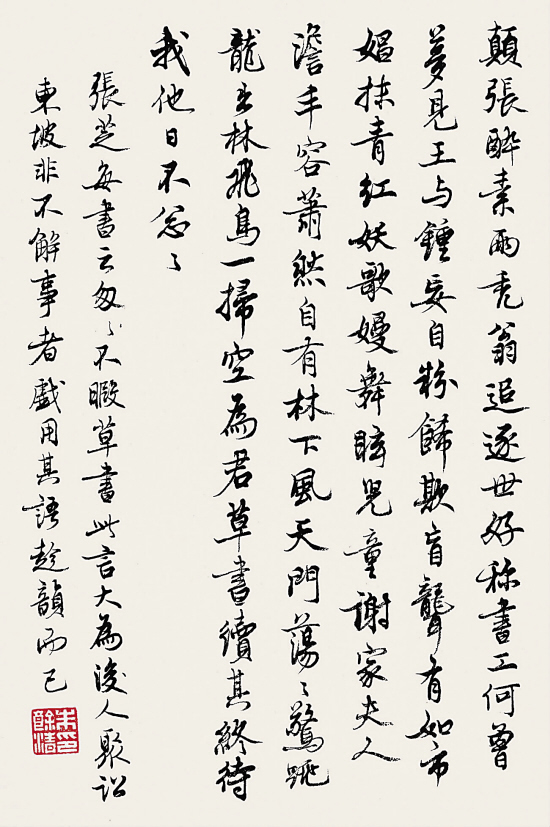 顛張醉素兩禿翁追逐世好称書工何曾
夢見王与鍾妄自粉飾欺盲聾有如市
娼抹青紅妖歌嫚舞眩兒童謝家夫人
澹丰容蕭然自有林下風天門蕩〻驚跳
龍出林飛鳥一掃空為君草書續其終待
我他日不忩〻
張芝每書云匆〻不暇草書此言大為後人聚訟
東坡非不解事者戲用其語趁韻而已